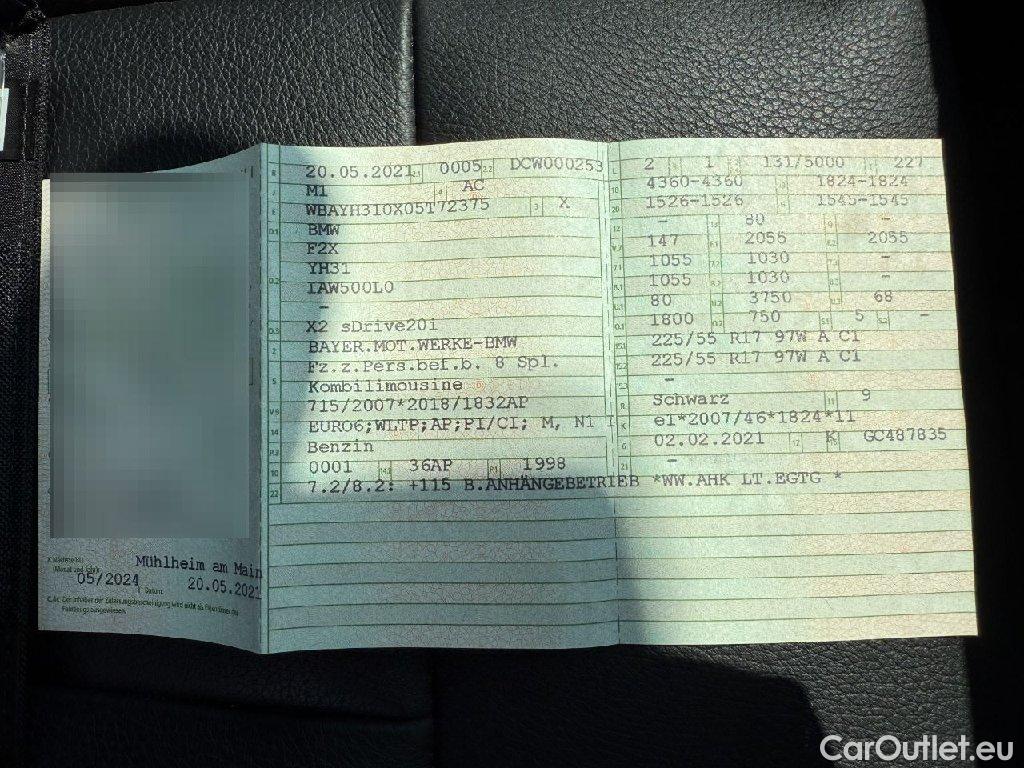 20.05.2021 0005 DCW000253
M1 AC
WBAYH310X05T72375 X
BMW
F2X
YH31
IAW500L0
-
X2 sDrive20i
BAYER.MOT.WERKE-BMW
Fz.z.Pers.bef.b. 8 Spl.
Kombilimousine
715/2007*2018/1832AP
EURO6;WLTP;AP;PI/CI; M, N1 I
Benzin
0001 36AP 1998
7.2/8.2: +115 B.ANHÄNGEBETRIEB *WW.AHK LT.EGTG *
2 1 131/5000 227
4360-4360 1824-1824
1526-1526 1545-1545
- 80 -
147 2055 2055
1055 1030 -
1055 1030 -
80 3750 68
1800 750 5 -
225/55 R17 97W A C1
225/55 R17 97W A C1
-
Schwarz 11 9
e1*2007/46*1824*11
02.02.2021 K GC487835
-
Mühlheim am Main
05/2024 Datum 20.05.2021
C.4c Der Inhaber der Zulassungsbescheinigung wird nicht als Eigentümer des
Fahrzeugs ausgewiesen.
CarOutlet.eu